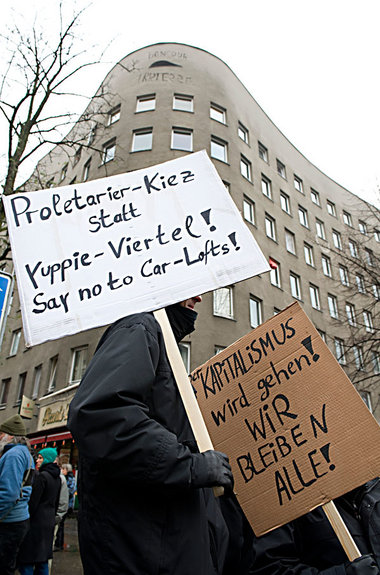 BONJOUR
TRISTESSE
Proletarier-Kiez
statt
Yuppie-Viertel!
Say no to Car-Lofts!
KAPITALISMUS
wird gehen!
WIR
BLEIBEN
ALLE!